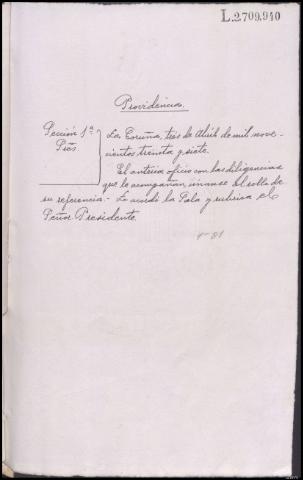 L.2709.940
Providencia.
Sección 1ª
Sres.
La Coruña, tres de Abril de mil nove-
cientos treinta y siete.
El anterior oficio con las diligencias
que le acompañan, únanse al rollo de
su referencia.- Lo acordó la Sala y rubrica el
Señor Presidente.